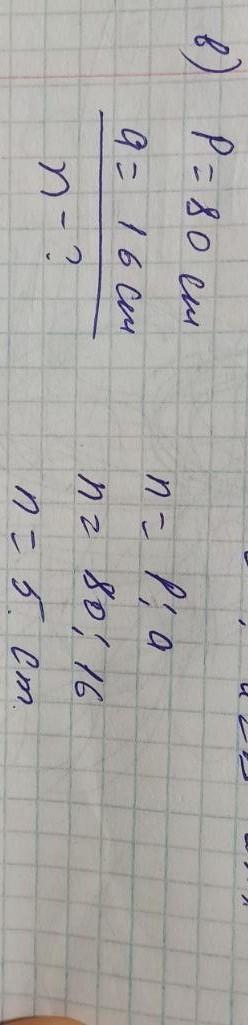 в)
P = 80 см
a = 16 см
n - ?
n = P : a
n = 80 : 16
n = 5 см.